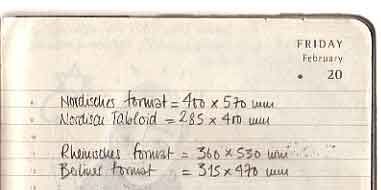 FRIDAY
February
20
Nordisches format = 400 x 570 mm
Nordisch Tabloid = 285 x 400 mm
Rheinisches format = 360 x 530 mm
Berliner format = 315 x 470 mm